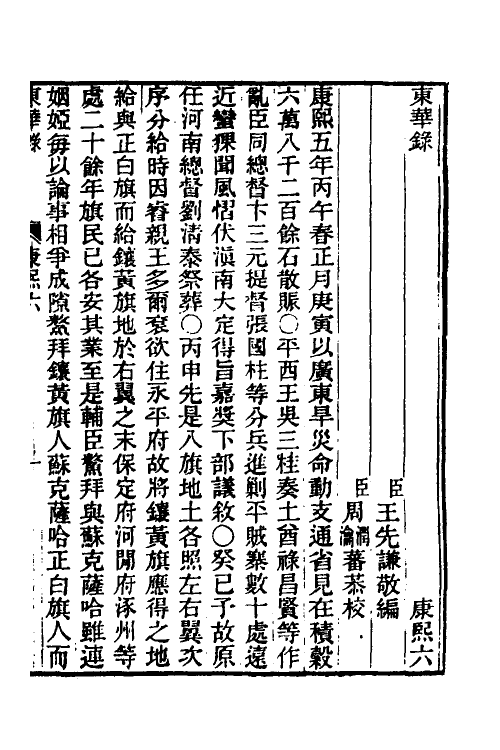 東華錄　康熙六
臣王先謙敬編
臣周潤蕃周瀹蕃恭校
康熙五年丙午春正月庚寅以廣東旱災命動支通省見在積穀
六萬八千二百餘石散賑○平西王吳三桂奏土酋祿昌賢等作
亂臣同總督卞三元提督張國柱等分兵進剿平賊寨數十處遠
近蠻猓聞風慴伏滇南大定得旨嘉獎下部議敘○癸巳予故原
任河南總督劉清泰祭葬○丙申先是八旗地土各照左右翼次
序分給時因睿親王多爾袞欲住永平府故將鑲黃旗應得之地
給與正白旗而給鑲黃旗地於右翼之末保定府河閒府涿州等
處二十餘年旗民已各安其業至是輔臣鰲拜與蘇克薩哈雖連
姻婭每以論事相爭成隙鰲拜鑲黃旗人蘇克薩哈正白旗人而
東華錄　康熙六　一